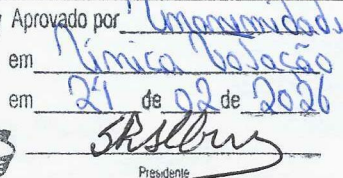 Aprovado por Unanimidade
em Única Votação
em 24 de 02 de 2026
Presidente